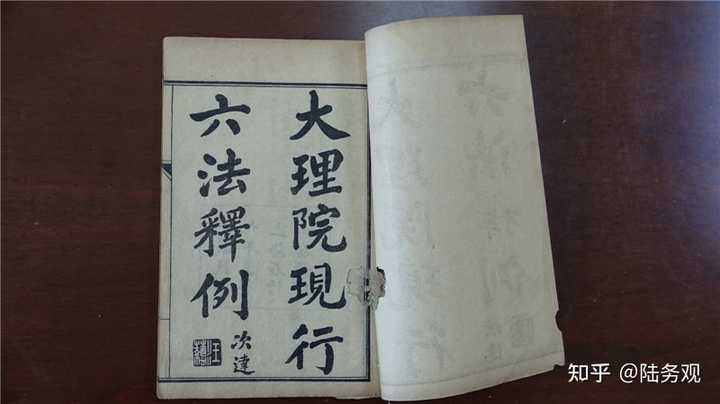 大理院現行
六法釋例
次達
知乎 @陆务观